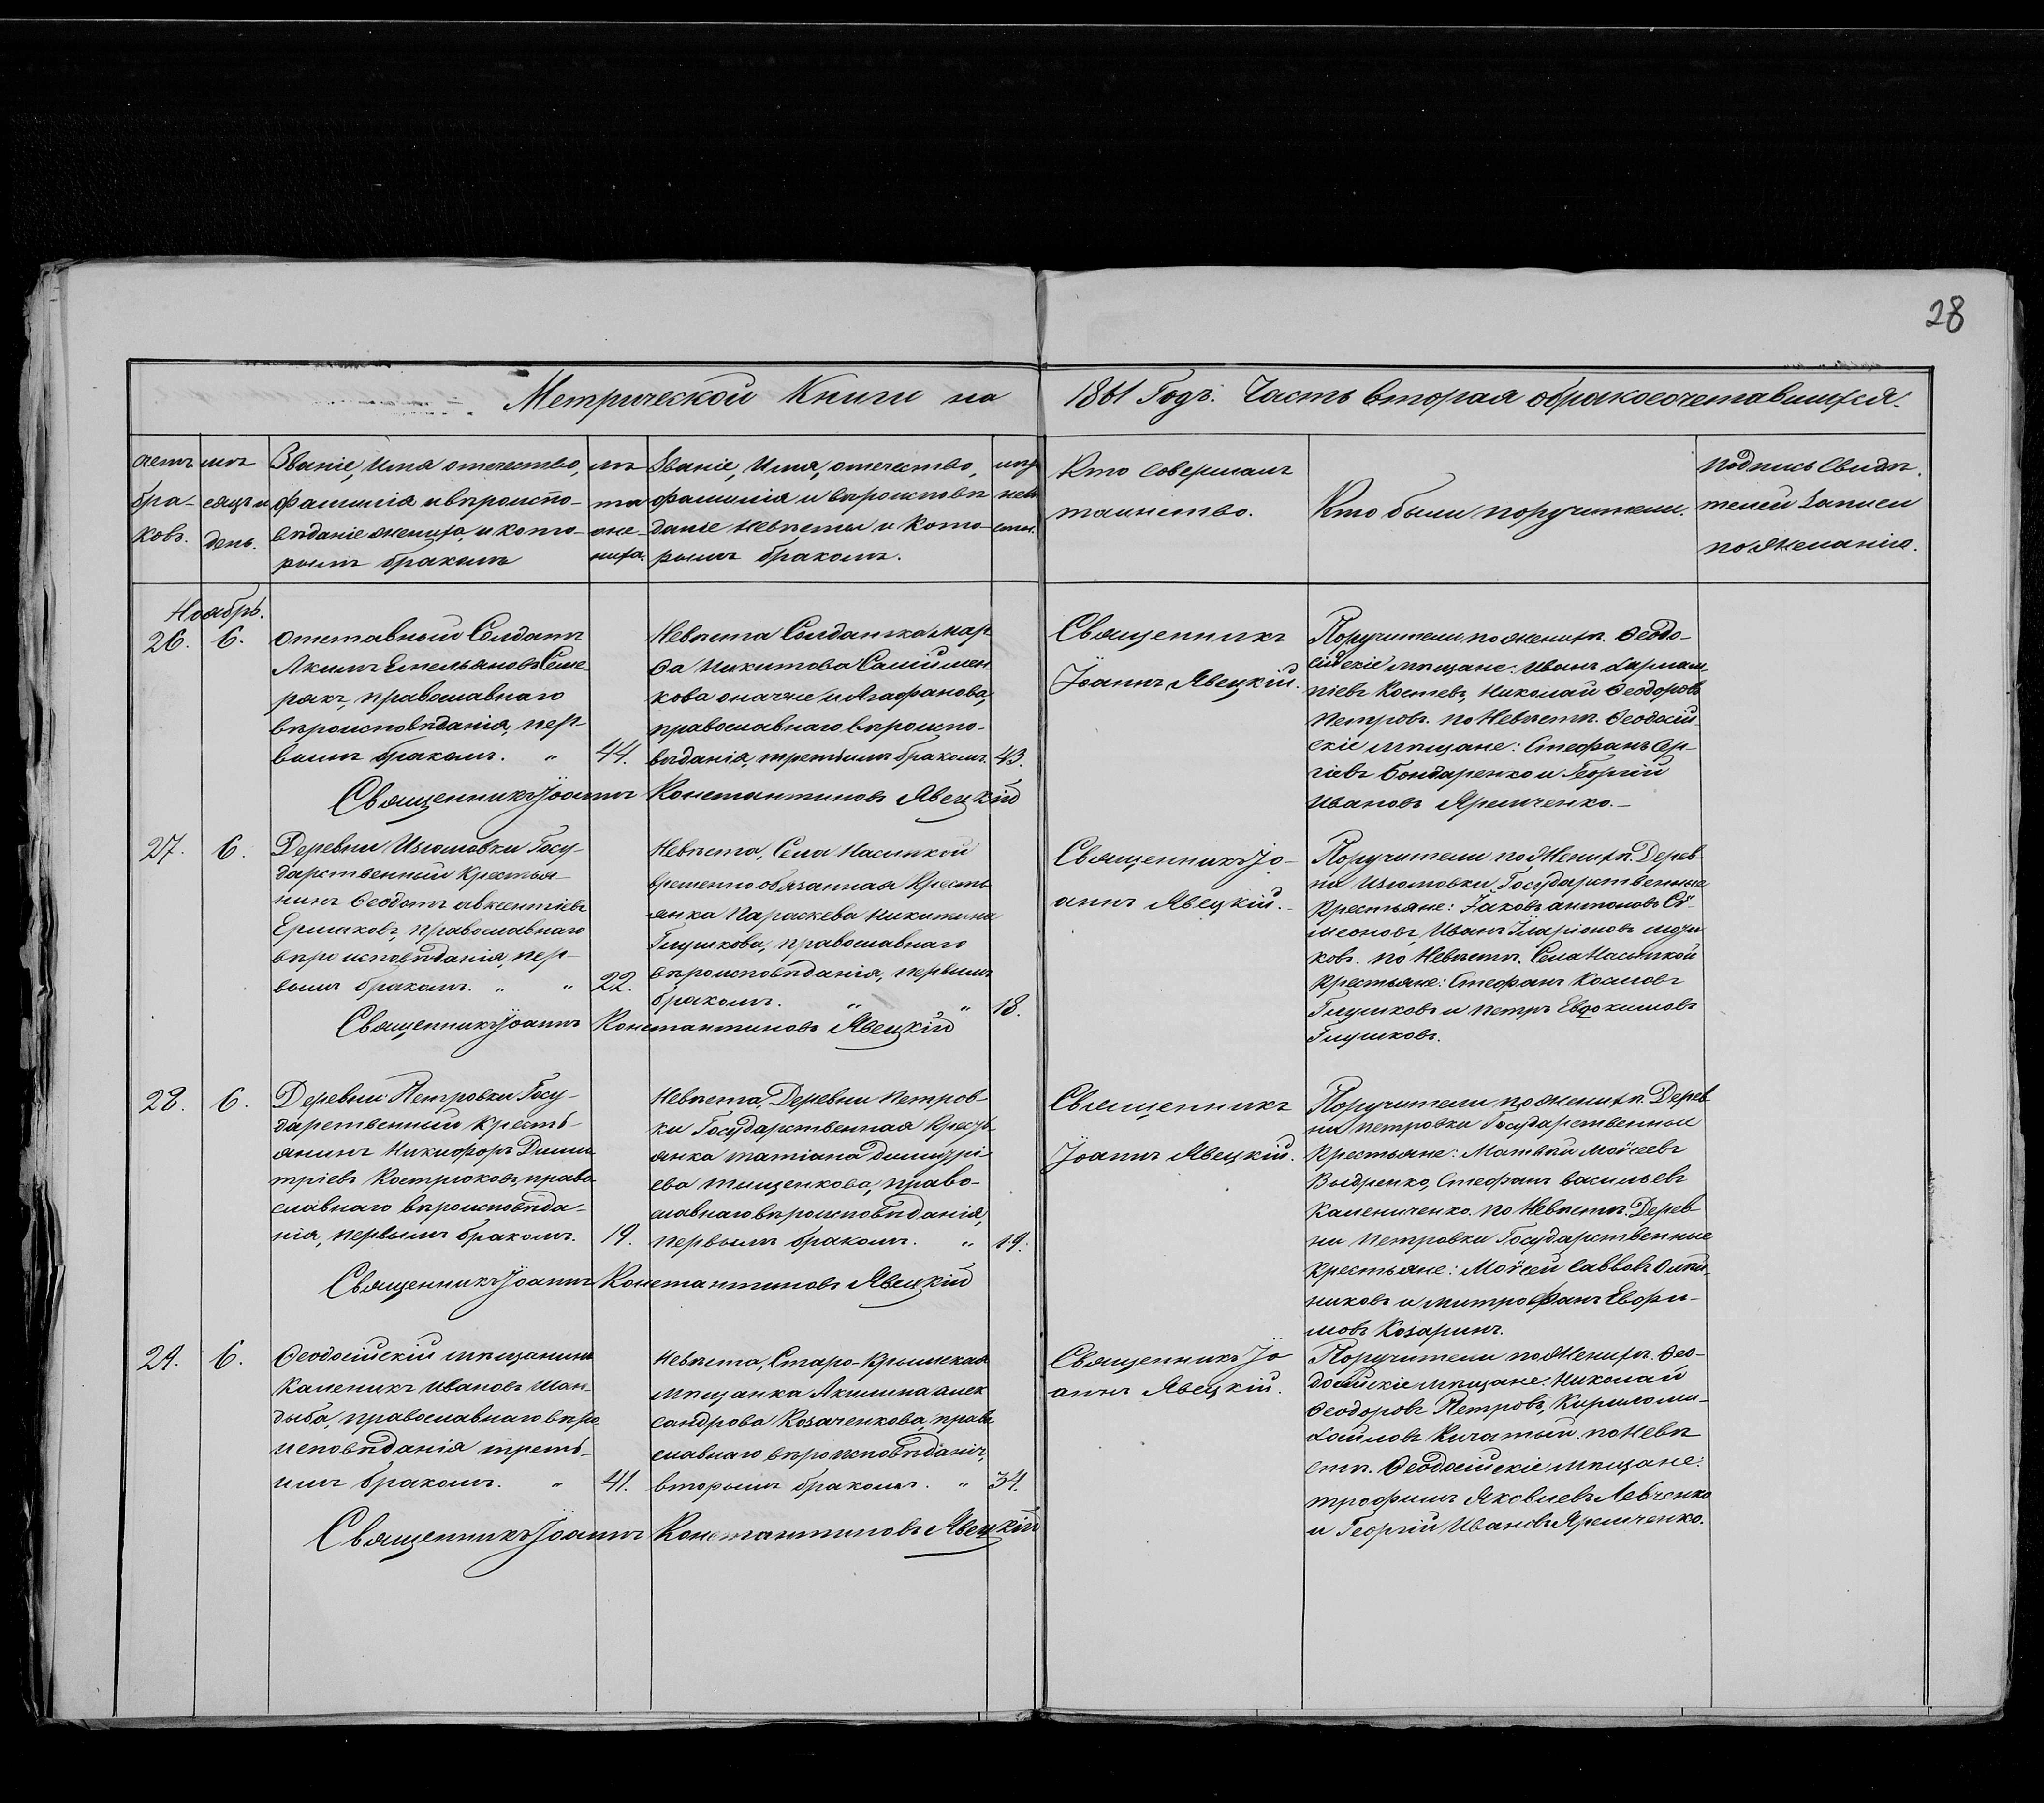 28
Метрической Книги на 1861 Годъ. Часть вторая обракосочетавшихся.
счетъ бра- ковъ.
мѣ сяцъ и день.
Званіе, Имя отечество,
фамилія и вѣроиспо-
вѣданіе жениха, и кото-
рымъ бракомъ
лѣ та же- ниха.
Званіе, Имя, отечество,
фамилія и вѣроисповѣ
даніе невѣсты и кото-
рымъ бракомъ.
лѣта невѣ сты.
Кто совершалъ
таинство.
Кто были поручители.
подпись свидѣ
телей записи
по желанію.
Ноябрь.
26. 6.
Отставный Солдатъ
Акимъ Емельяновъ Семе
ракъ, православнаго
вѣроисповѣданія, пер-
вымъ бракомъ. " 44.
Невѣста Солдатка мар
ѳа Никитова Самimен
кова она же и Агафанова,
православнаго вѣроиспо-
вѣданія, третьимъ бракомъ. 43.
Священникъ
Іоаннъ Явецкій.
Поручители по женихѣ. Ѳеодо-
сійскіе мѣщане: Иванъ Харлам
піевъ Костевъ, Николай Ѳеодоровъ
Петровъ. по Невѣстѣ. Ѳеодосій
скіе мѣщане: Стефанъ Сер-
гіевъ Бондаренко и Георгій
Ивановъ Яремченко.
Священникъ Іоаннъ Константиновъ Явецкій
27. 6.
Деревни Изюмовки Госу-
дарственный Крестья-
нинъ Ѳеодотъ авксентіевъ
Ермаковъ, православнаго
вѣроисповѣданія, пер-
вымъ бракомъ. " " 22.
Невѣста, Села Насыпкой
временно обязанная Кресть
янка Параскева Никитина
Глушкова, православнаго
вѣроисповѣданія, первымъ
бракомъ. " " 18.
Священникъ Іо-
аннъ Явецкій.
Поручители по Женихѣ. Дерев-
ни Изюмовки Государственные
Крестьяне: Іаковъ антоновъ Сѵ
меоновъ, Иванъ Иларіоновъ
ковъ. по Невѣстѣ. Села Насыпкой
Крестьяне: Стефанъ Космовъ
Глушковъ и петръ Евдокимовъ
Глушковъ.
Священникъ Іоаннъ Константиновъ Явецкій
28. 6.
Деревни Петровки Госу-
дарственный Кресть-
янинъ Никифоръ Дими
тріевъ Костроковъ, право
славнаго вѣроисповѣда-
нія, первымъ бракомъ. 19.
Невѣста, Деревни Петров-
ки Государственная Кресть
янка татіана димитрі-
ева тыщенкова, право-
славнаго вѣроисповѣданія,
первымъ бракомъ. " 19.
Священникъ
Іоаннъ Явецкій.
Поручители по женихѣ. Дерев
ни петровки Государственные
Крестьяне: Матвѣй Моѵсеевъ
Выдренко, Стефанъ васильевъ
Камениченко. по Невѣстѣ. Дерев
ни Петровки Государственные
Крестьяне: Моѵсей Саввовъ
никовъ и митрофанъ Евфи-
мовъ Козаринъ.
Священникъ Іоаннъ Константиновъ Явецкій
29. 6.
Ѳеодосійскій мѣщанинъ
Каленикъ Ивановъ Шан-
дыба, православнаго вѣро
исповѣданія треть-
имъ бракомъ. " 41.
Невѣста, Старо-Крымская
мѣщанка Акилина алек
сандрова Козаченкова, право
славнаго вѣроисповѣданія,
вторымъ бракомъ. " 34.
Священникъ Іо
аннъ Явецкій.
Поручители по Женихѣ. Ѳео-
досійскіе мѣщане: Николай
Ѳеодоровъ Петровъ, Кирило ми-
хайловъ Кичатый. по Невѣ
стѣ. Ѳеодосійскіе мѣщане:
трофимъ Яковлевъ Левченко
и Георгій Ивановъ Яремченко.
Священникъ Іоаннъ Константиновъ Явецкій